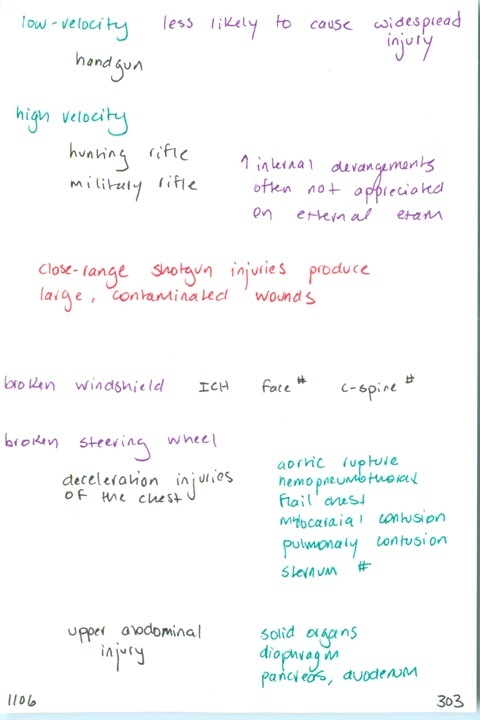 low-velocity less likely to cause widespread
injury
handgun
high velocity
hunting rifle
military rifle
↑ internal derangements
often not appreciated
on external exam
close-range shotgun injuries produce
large, contaminated wounds
broken windshield ICH face # c-spine #
broken steering wheel
deceleration injuries
of the chest
aortic rupture
hemopneumothorax
flail chest
myocardial contusion
pulmonary contusion
sternum #
upper abdominal
injury
solid organs
diaphragm
pancreas, duodenum
1106 303